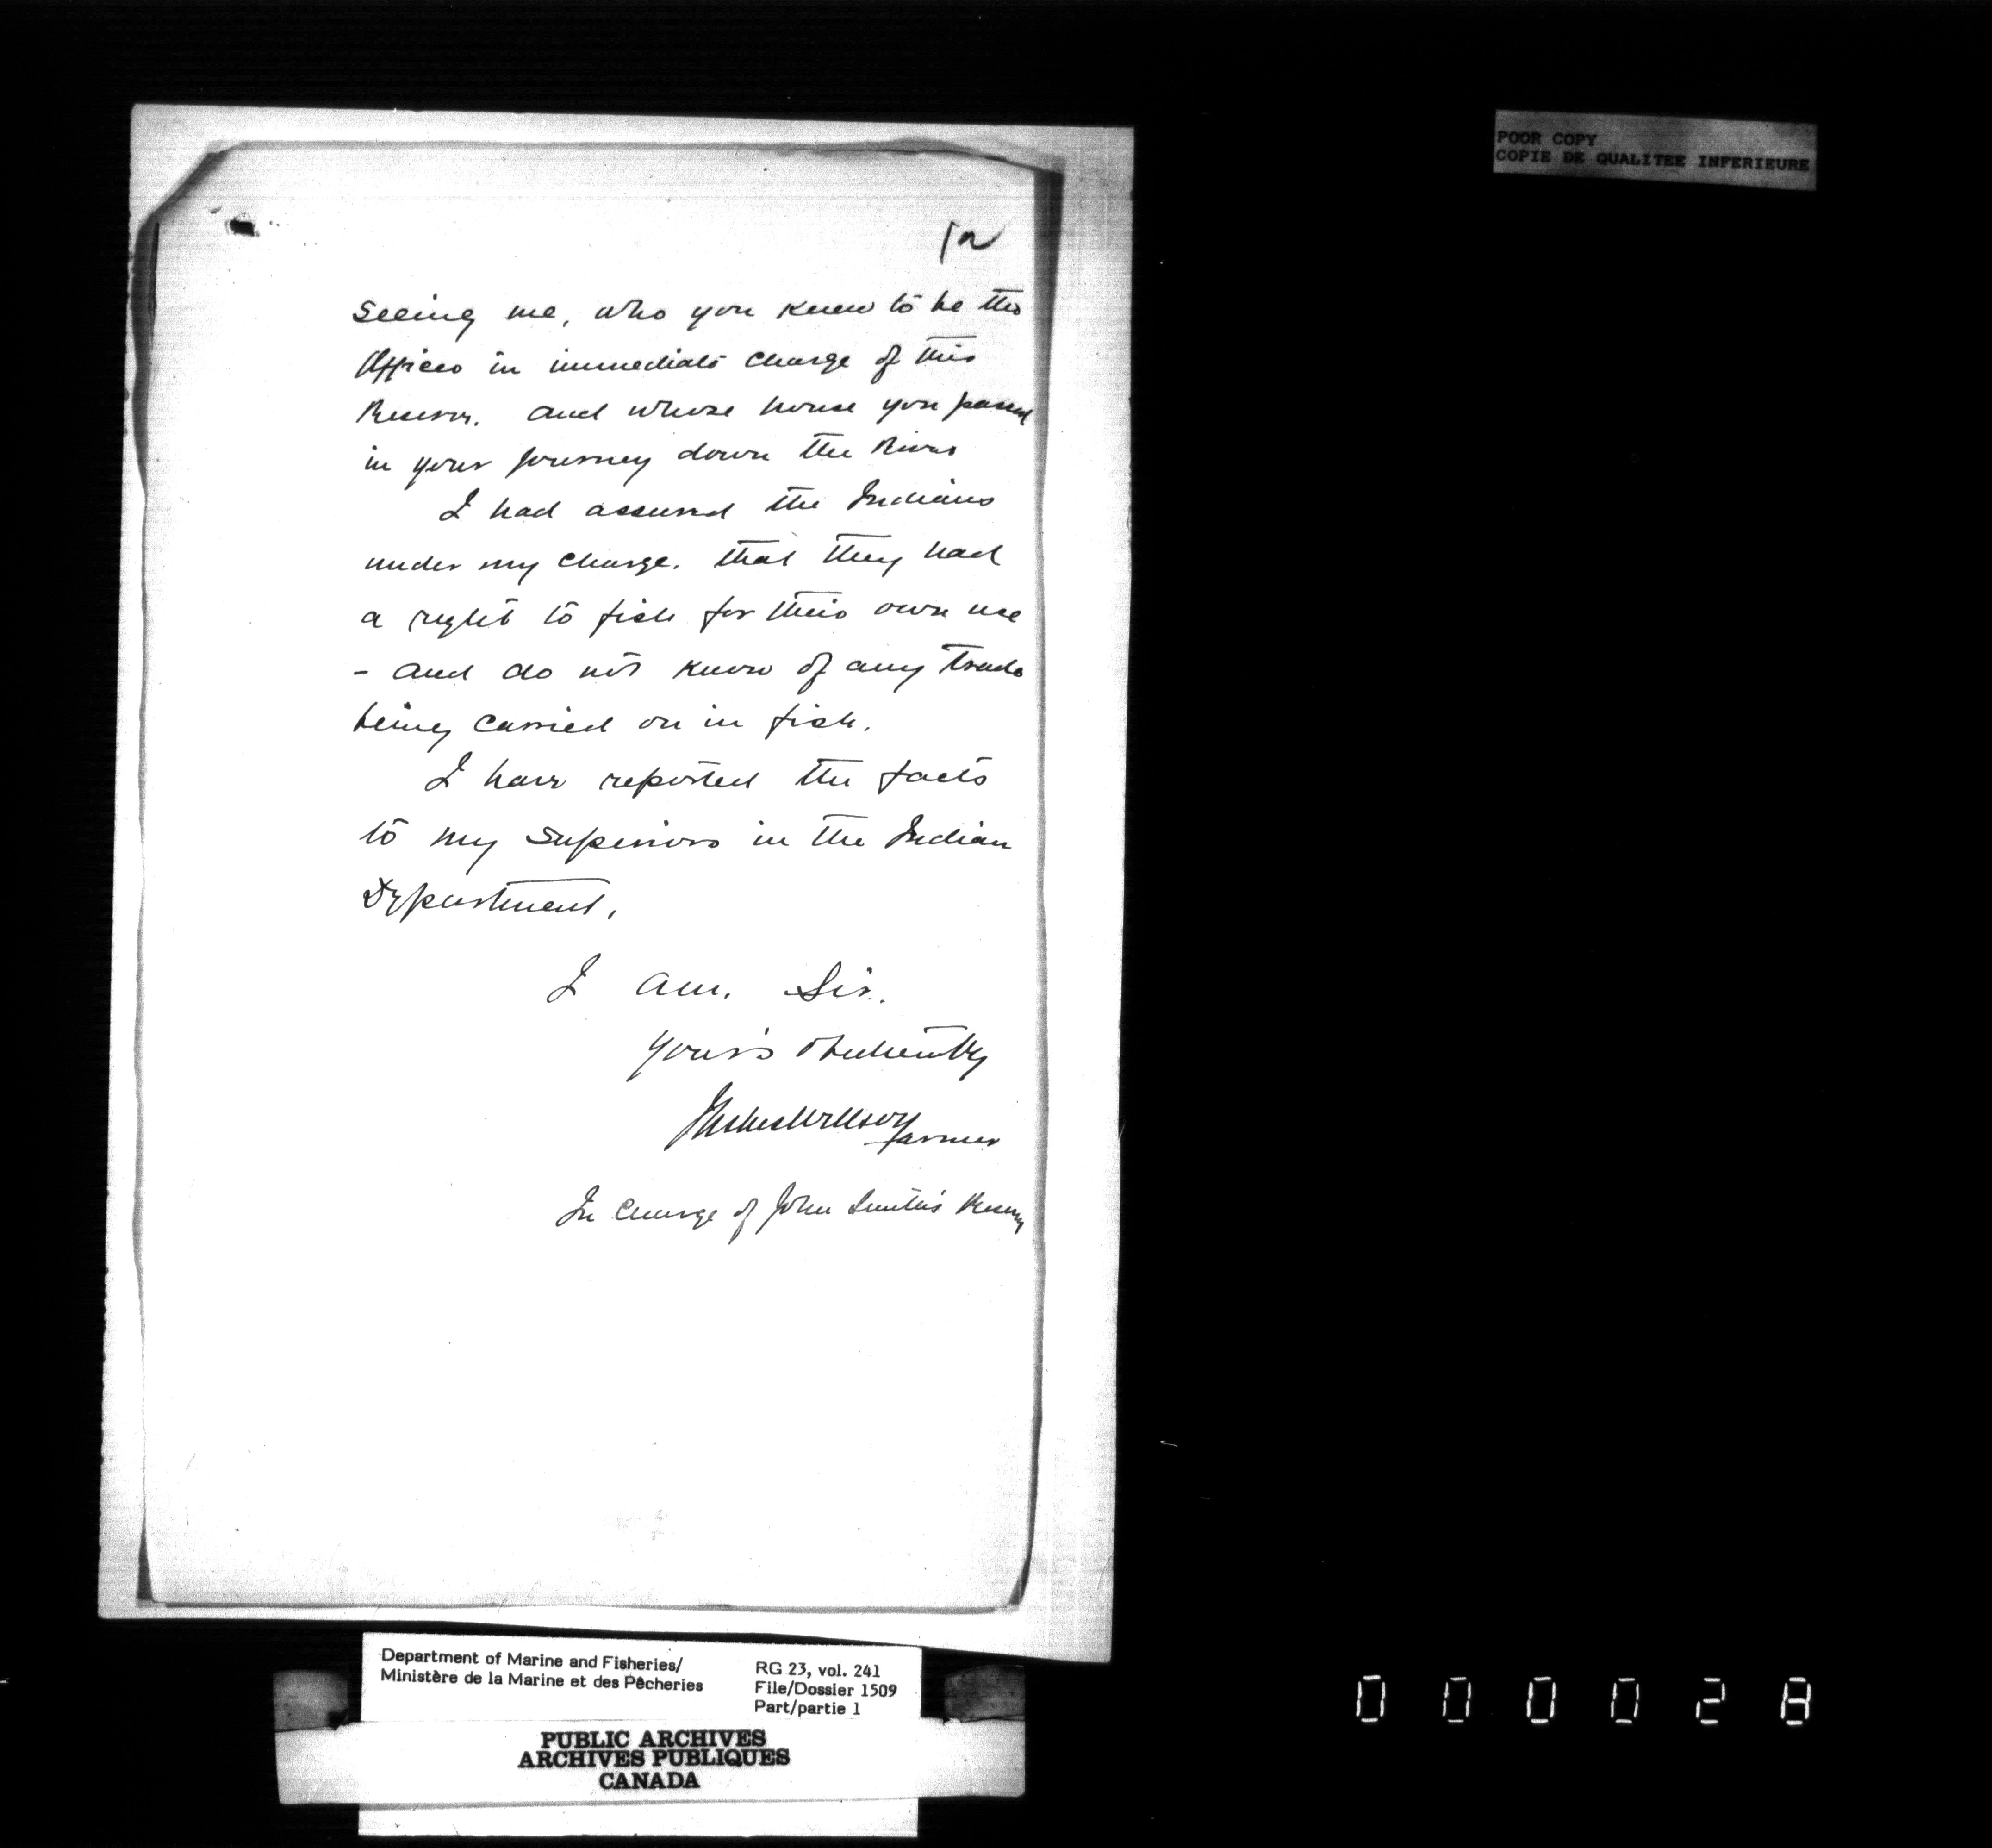 POOR COPY
COPIE DE QUALITEE INFERIEURE
12
seeing me, who you knew to be the
Officer in immediate charge of this
Reserve. and whose house you passed
in your journey down the River
I had assured the Indians
under my charge. that they had
a right to fish for their own use
- and do not know of any trade
being carried on in fish.
I have reported the facts
to my Superiors in the Indian
Department.
I am. Sir.
Your's obediently
Farmer
In charge of John Smith's Reserve
Department of Marine and Fisheries/
Ministère de la Marine et des Pêcheries
RG 23, vol. 241
File/Dossier 1509
Part/partie 1
PUBLIC ARCHIVES
ARCHIVES PUBLIQUES
CANADA
000028